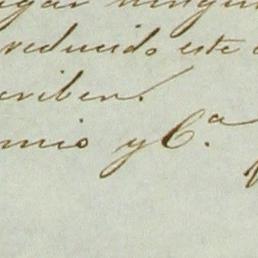 ningun
reducido este
criben.
mio y C.ª